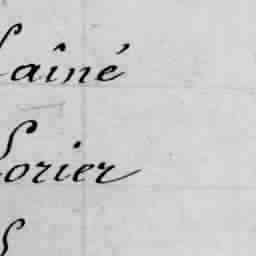 Lainé
Lorier